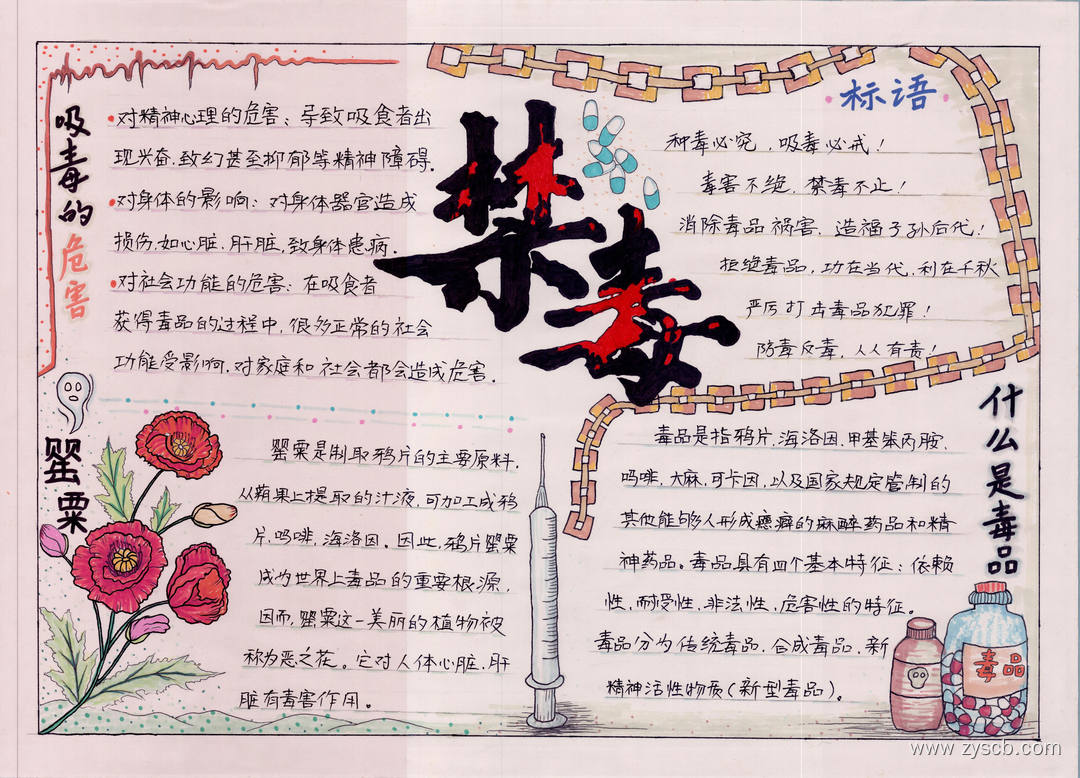 吸毒的危害
•对精神心理的危害、导致吸食者出
现兴奋.致幻甚至抑郁等精神障碍.
•对身体的影响：对身体器官造成
损伤.如心脏.肝脏.致身体患病.
•对社会功能的危害：在吸食者
获得毒品的过程中，很多正常的社会
功能受影响.对家庭和社会都会造成危害.
禁毒
标语
种毒必究，吸毒必戒！
毒害不绝，禁毒不止！
消除毒品祸害，造福子孙后代！
拒绝毒品，功在当代，利在千秋
严厉打击毒品犯罪！
防毒反毒，人人有责！
罂粟
罂粟是制取鸦片的主要原料，
从蒴果上提取的汁液，可加工成鸦
片，吗啡，海洛因。因此，鸦片罂粟
成为世界上毒品的重要根源，
因而，罂粟这一美丽的植物被
称为恶之花。它对人体心脏，肝
脏有毒害作用。
什么是毒品
毒品是指鸦片，海洛因，甲基苯丙胺，
吗啡，大麻，可卡因，以及国家规定管制的
其他能够人形成瘾癖的麻醉药品和精
神药品。毒品具有四个基本特征：依赖
性，耐受性，非法性，危害性的特征。
毒品分为传统毒品，合成毒品，新
精神活性物质（新型毒品）。
毒品
www.zyscb.com